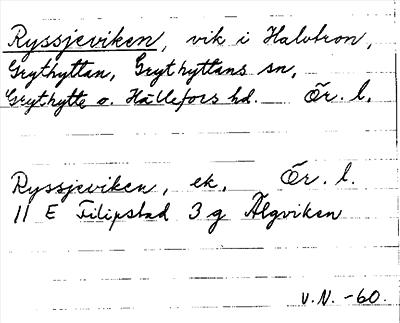 Ryssjeviken, vik i Halvtron,
Grythyttan, Grythyttans sn,
Grythytte o. Hällefors hd. Ör. l.
Ryssjeviken, ek, Ör. l.
11 E Filipstad 3 g Älgviken
V.N. -60.